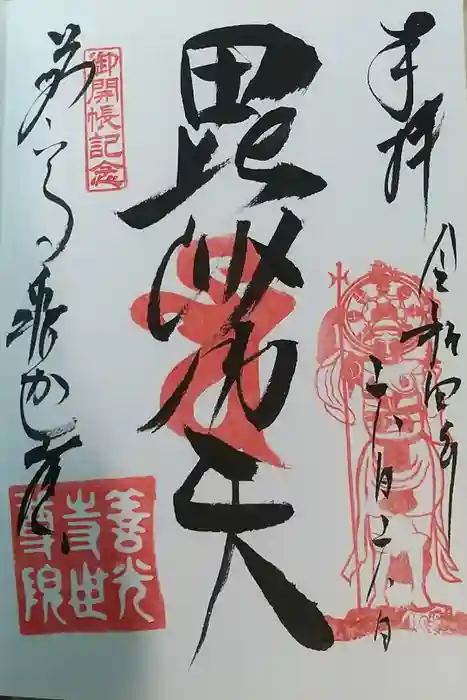 奉拝
令和四年
六月二六日
毘沙門天
御開帳記念
善光寺釈迦堂
善光
寺世
尊院